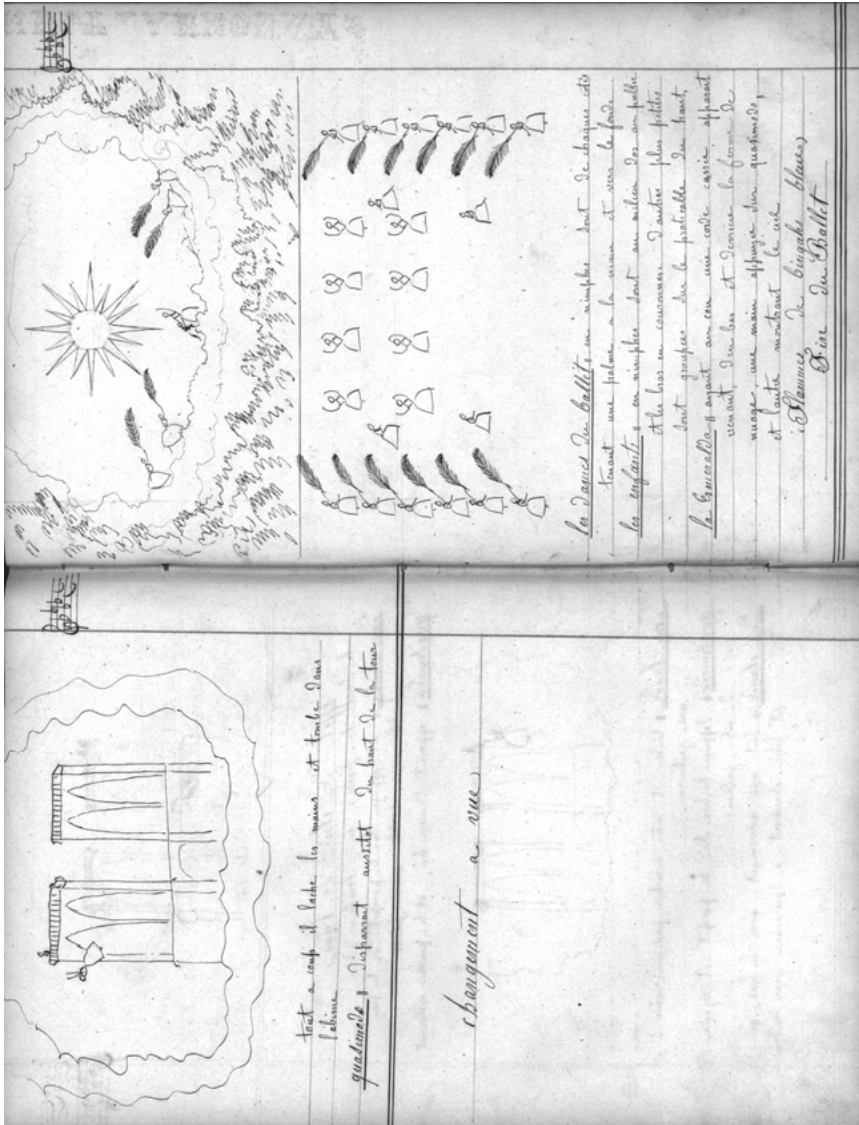 tout a coup il lache les mains et tombe dans
l'abime
quasimodo // disparrait aussitot du haut de la tour
changement a vue
les dames du ballet // en nimphes sont de chaques coté
tenant une palme a la main et vers le fond
les enfants // en nimphes sont au milieu dos au public
et les bras en couronnes d'autres plus petites
sont groupées sur le praticable du haut,
la Esmeralda // ayant au cou une corde cassée apparait
venant d'en bas et derriere la ferme de
nuage, une main appuyée sur quasimodo,
et l'autre montrant le ciel
(Flammes de bingales bleues)
Fin du Ballet